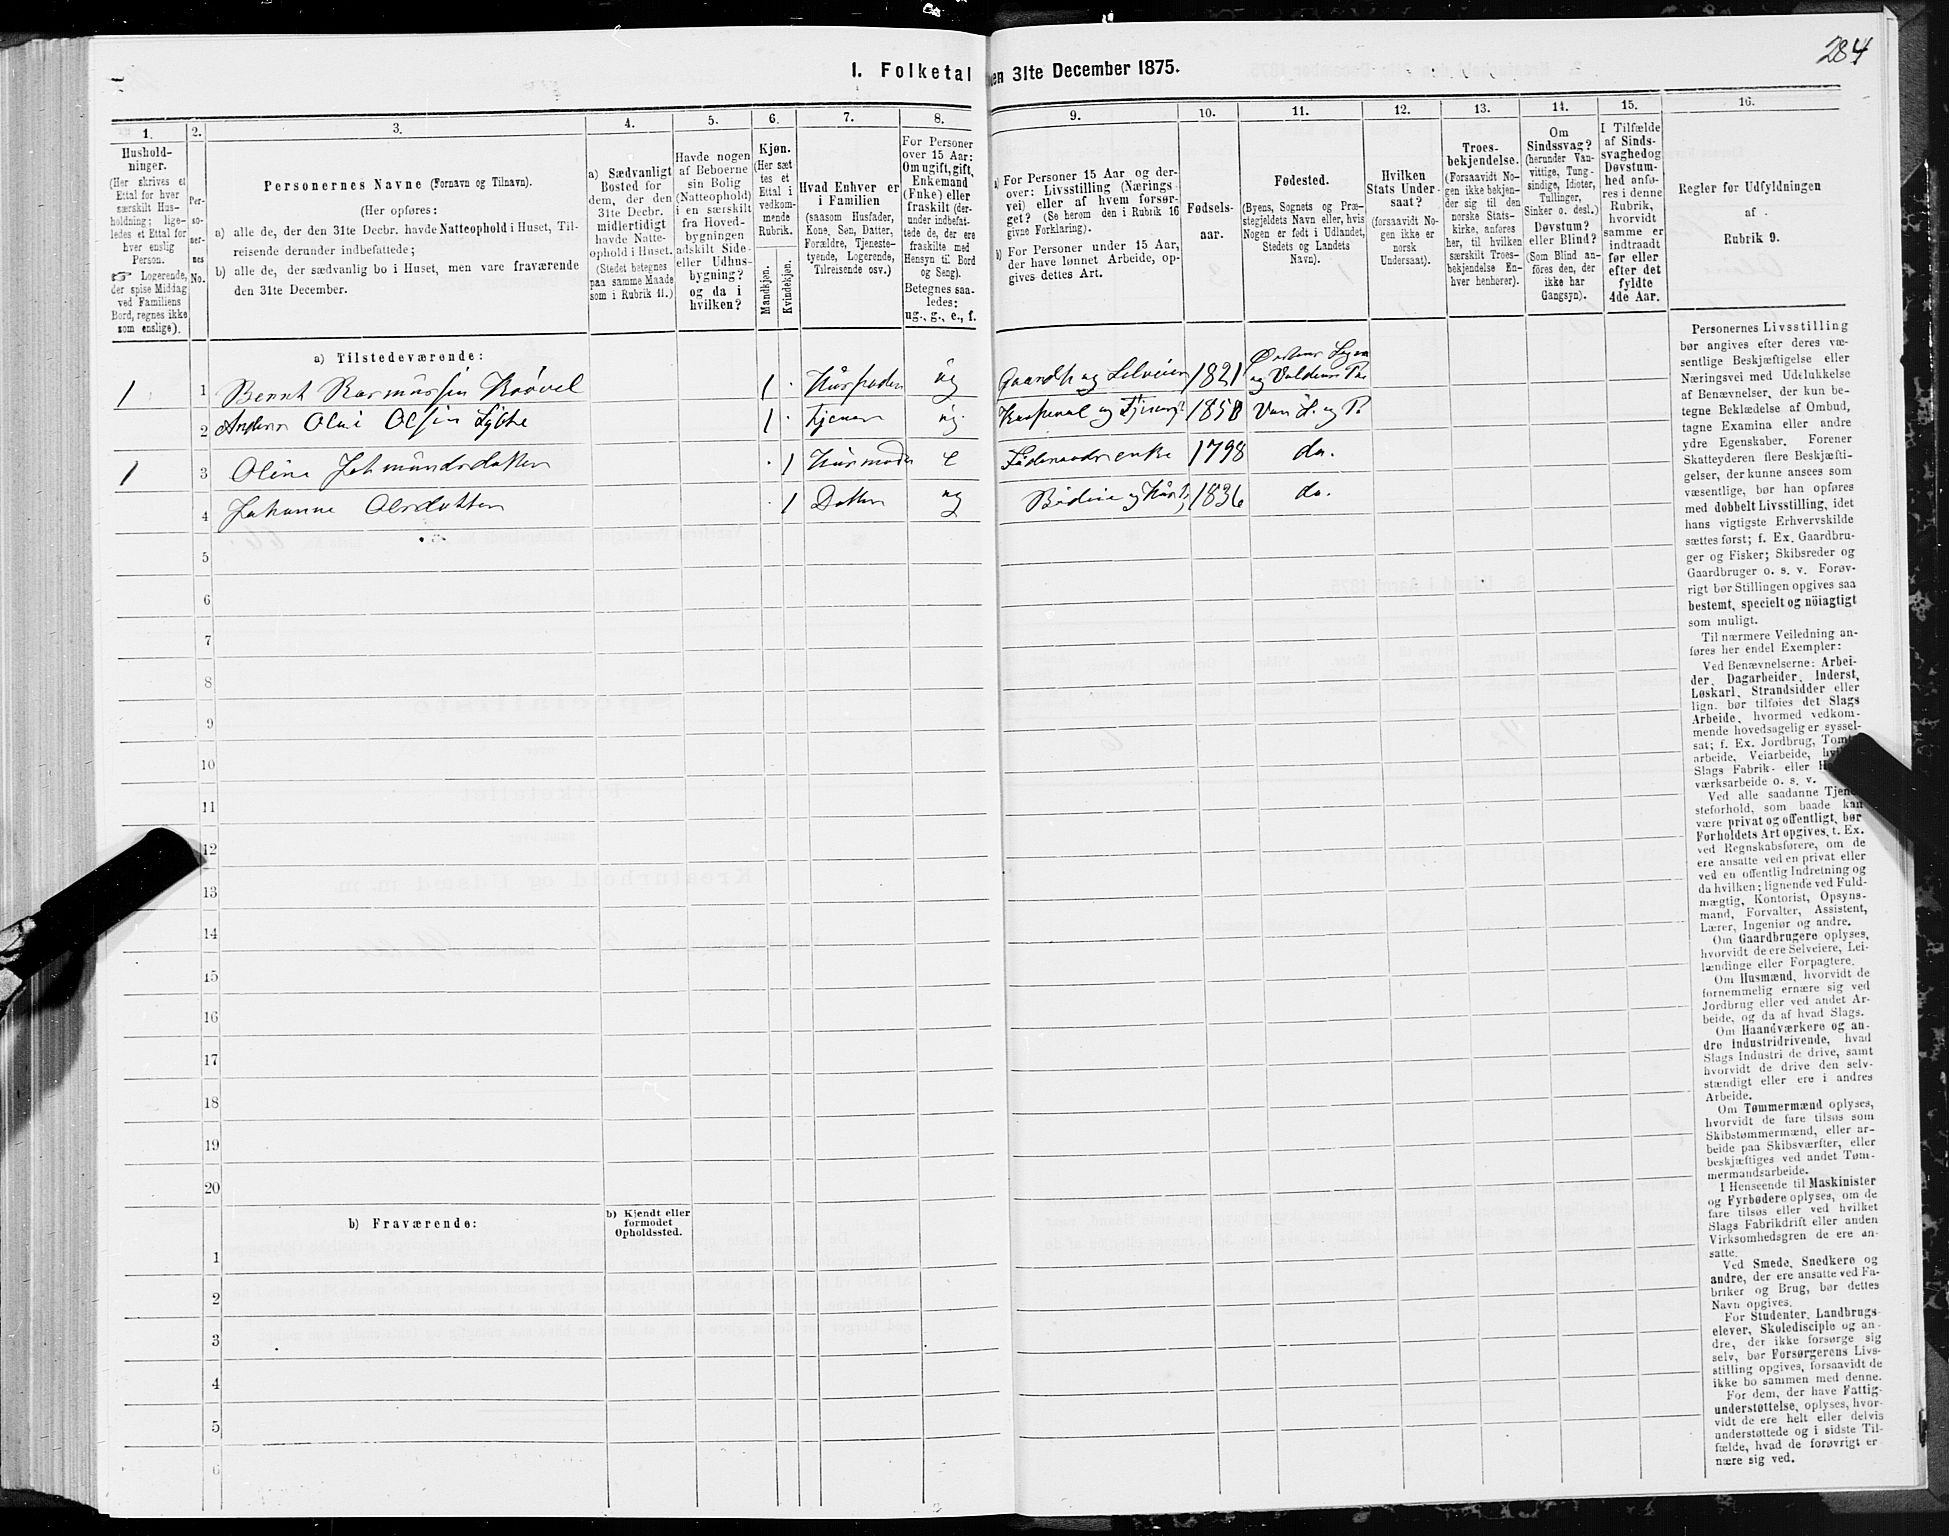 284
I. Folketal den 31te December 1875.
1.
2.
3.
4.
5.
6.
7.
8.
9.
10.
11.
12.
13.
14.
15.
16.
Hushold-
ninger.
(Her skrives et
Ettal for hver
særskilt Hus-
holdning; lige-
ledes et Ettal for
hver enslig
Person.
☞ Logerende,
der spise Middag
ved Familiens
Bord, regnes ikke
som enslige).
Per-
so-
ner-
nes
No.
Personernes Navne (Fornavn og Tilnavn).
(Her opføres:
a) alle de, der den 31te Decbr. havde Natteophold i Huset, Til-
reisende derunder indbefattede;
b) alle de, der sædvanlig bo i Huset, men vare fraværende
den 31te December.
a) Sædvanligt
Bosted for
dem, der den
31te Decbr.
midlertidigt
havde Natte-
ophold i Huset.
(Stedet betegnes
paa samme Maade
som i Rubrik 11.)
Havde nogen
af Beboerne
sin Bolig
(Natteophold)
i en særskilt
fra Hoved-
bygningen
adskilt Side-
eller Udhus-
bygning?
og da i
hvilken?
Kjøn.
(Her sæt-
tes et
Ettal i
vedkom-
mende
Rubrik.
Mandkjøn.
Kvindekjøn.
Hvad Enhver er
i Familien
(saasom Husfader,
Kone, Søn, Datter,
Forældre, Tjeneste-
tyende, Logerende,
Tilreisende osv.)
For Personer
over 15 Aar:
Om ugift, gift,
Enkemand
(Enke) eller
fraskilt (der-
under indbefat-
tede de, der ere
fraskilte med
Hensyn til Bord
og Seng).
Betegnes saa-
ledes:
ug., g., e., f.
a) For Personer 15 Aar og der-
over: Livsstilling (Nærings-
vei) eller af hvem forsør-
get? (Se herom den i Rubrik 16
givne Forklaring).
b) For Personer under 15 Aar,
der have lønnet Arbeide, op-
gives dettes Art.
Fødsels-
aar.
Fødested.
(Byens, Sognets og Præ-
stegjeldets Navn eller, hvis
Nogen er født i Udlandet,
Stedets og Landets
Navn).
Hvilken
Stats Under-
saat?
(forsaavidt No-
gen ikke er
norsk
Undersaat).
Troes-
bekjendelse.
(Forsaavidt No-
gen ikke bekjen-
der sig til den
norske Stats-
kirke, anføres
her, til hvilken
særskilt Troes-
bekjendelse En-
hver henhører).
Om
Sindssvag?
(herunder Van-
vittige, Tung-
sindige, Idioter,
Tullinger,
Sinker o. desl.)
Døvstum?
eller Blind?
(Som Blind an-
føres den, der
ikke har
Gangsyn).
I Tilfælde
af Sinds-
svaghed og
Døvstum-
hed anfø-
res i denne
Rubrik,
hvorvidt
samme er
indtraadt
før eller
efter det
fyldte
4de Aar.
Regler for Udfyldningen
af
Rubrik 9.
a) Tilstedeværende:
1 1 Bernt Rasmussen Krøvel 1 Husfader ug Gaardb og Selveier 1821 og Voldens Pr
2 Olsen 1 Tjener ug. 1858 og Pr
1 3 Oline 1 Husmoder e 1798 do.
4 Johanne Olsdatter 1 Datter ug Budeie og 1836 do.
5
6
7
8
9
10
11
12
13
14
15
16
17
18
19
20
b) Fraværende:
b) Kjendt eller
formodet
Opholdssted.
1
2
3
4
5
6
Personernes Livsstilling
bør angives efter deres væ-
sentlige Beskjæftigelse eller
Næringsvei med Udelukkelse
af Benævnelser, der kun be-
tegne Beklædelse af Ombud,
tagne Examina eller andre
ydre Egenskaber. Forener
Skatteyderen flere Beskjæfti-
gelser, der kunne ansees som
væsentlige, bør han opføres
med dobbelt Livsstilling, idet
hans vigtigste Erhvervskilde
sættes først; f. Ex. Gaardbru-
ger og Fisker; Skibsreder og
Gaardbruger o. s. v. Forøv-
rigt bør Stillingen opgives saa
bestemt, specielt og nöiagtigt
som muligt.
Til nærmere Veiledning an-
føres her endel Exempler:
Ved Benævnelserne: Arbei-
der, Dagarbeider, Inderst,
Løskarl, Strandsidder eller
lign. bør tilføies det Slags
Arbeide, hvormed vedkom-
mende hovedsagelig er syssel-
sat; f. Ex. Jordbrug, Tomt-
arbeide, Veiarbeide,
Slags Fabrik- eller
værksarbeide o. s. v.
Ved alle saadanne Tjene-
steforhold, som baade kan
være privat og offentligt, bør
Forholdets Art opgives, t. Ex.
ved Regnskabsførere, om de
ere ansatte ved en privat eller
ved en offentlig Indretning og
da hvilken; lignende ved Fuld-
mægtig, Kontorist, Opsyns-
mand, Forvalter, Assistent,
Lærer, Ingeniør og andre.
Om Gaardbrugere oplyses,
hvorvidt de ere Selveiere, Lei-
lændinge eller Forpagtere.
Om Husmænd, hvorvidt de
fornemmelig ernære sig ved
Jordbrug eller ved andet Ar-
beide, og da af hvad Slags.
Om Haandværkere og an-
dre Industridrivende, hvad
Slags Industri de drive, samt
hvorvidt de drive den selv-
stændigt eller ere i andres
Arbeide.
Om Tømmermænd oplyses,
hvorvidt de fare tilsøs som
Skibstømmermænd, eller ar-
beide paa Skibsværfter, eller
beskjæftiges ved andet Tøm-
mermandsarbeide.
I Henseende til Maskinister
og Fyrbødere oplyses, om de
fare tilsøs eller ved hvilket
Slags Fabrikdrift eller anden
Virksomhedsgren de ere an-
satte.
Ved Smede, Snedkere og
andre, der ere ansatte ved Fa-
briker og Brug, bør dettes
Navn opgives.
For Studenter, Landbrugs-
elever, Skoledisciple og an-
dre, der ikke forsørge sig
selv, bør Forsørgerens Livs-
stilling opgives, forsaavidt de
ikke bo sammen med denne.
For dem, der have Fattig-
understøttelse, oplyses, hvor-
vidt de ere helt eller delvis
understøttede og i sidste Til-
fælde, hvad de forøvrigt er-
nære sig ved.